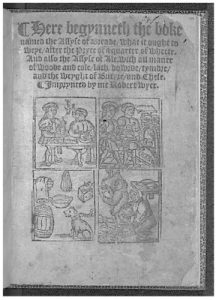 Here begynneth the boke
named the Assyse of Breade, what it ought to
weye, after the Pryce of a quarter of Wheete.
And also the Assyse of Ale, with all maner
of Wood and cole, lath, bowrde, tymbre,
and the weyght of Butyre, and Chese.
Imprynted by me Robert Wyer.